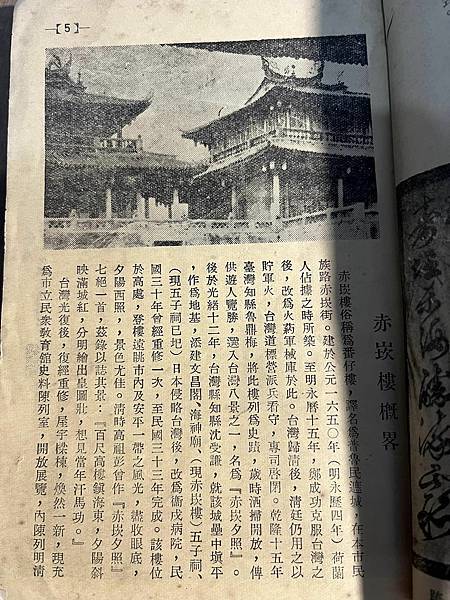 【5】
赤崁樓概畧
赤崁樓俗稱爲番仔樓，譯名爲普魯民遮城，在本市民
族路赤崁街。建於公元一六五〇年（明永曆四年）荷蘭
人佔據之時所築。至明永曆十五年，鄭成功克服台灣之
後，改爲火葯軍械庫於此。台灣歸清後，清廷仍用之以
貯軍火，台灣道標營派兵看守，專司啓閉。乾隆十五年
臺灣知縣魯鼎梅，將此樓列爲史蹟，歲時洒掃開放，俾
供遊人覽勝，選入台灣八景之一，名爲『赤崁夕照』。
後於光緒十二年，台灣縣知縣沈受謙，就該城壘中塡平
，作爲地基，添建文昌閣、海神廟、（現赤崁樓）五子祠、
（現五子祠已圯）日本侵略台灣後，改爲衞戍病院，民
國三十年曾經重修一次，至民國三十三年完成。該樓位
於高處，登樓遠眺市內及安平一帶之風光，盡收眼底，
夕陽西照，，景色尤佳。淸時高祖彭曾作『赤崁夕照』
七絕一首，茲錄以誌其景：『百尺高樓鎮海東，夕陽斜
映滿城紅，分明繪出皇圖壯，想見當年汗馬功。』
台灣光復後，復經重修，屋宇樑棟，煥然一新，現充
爲市立民衆敎育舘史料陳列室，開放展覽，內陳列明清